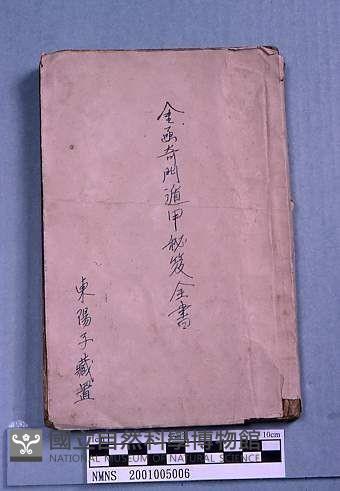 金函奇門遁甲秘笈全書
東陽子藏置
國立自然科學博物館
NATIONAL MUSEUM OF NATURAL SCIENCE
10cm
NMNS 2001005006